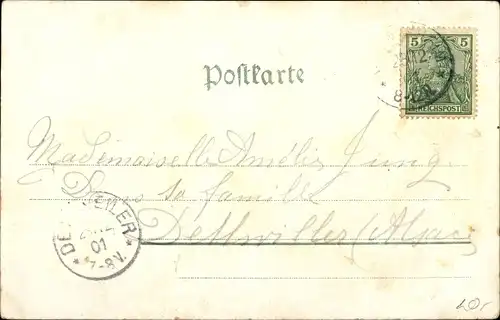 5 5
REICHSPOST
8-9N
Postkarte
Mademoiselle Amélie Jung
Dans sa famille
Dettwiller (Alsace)
01
7-8V.